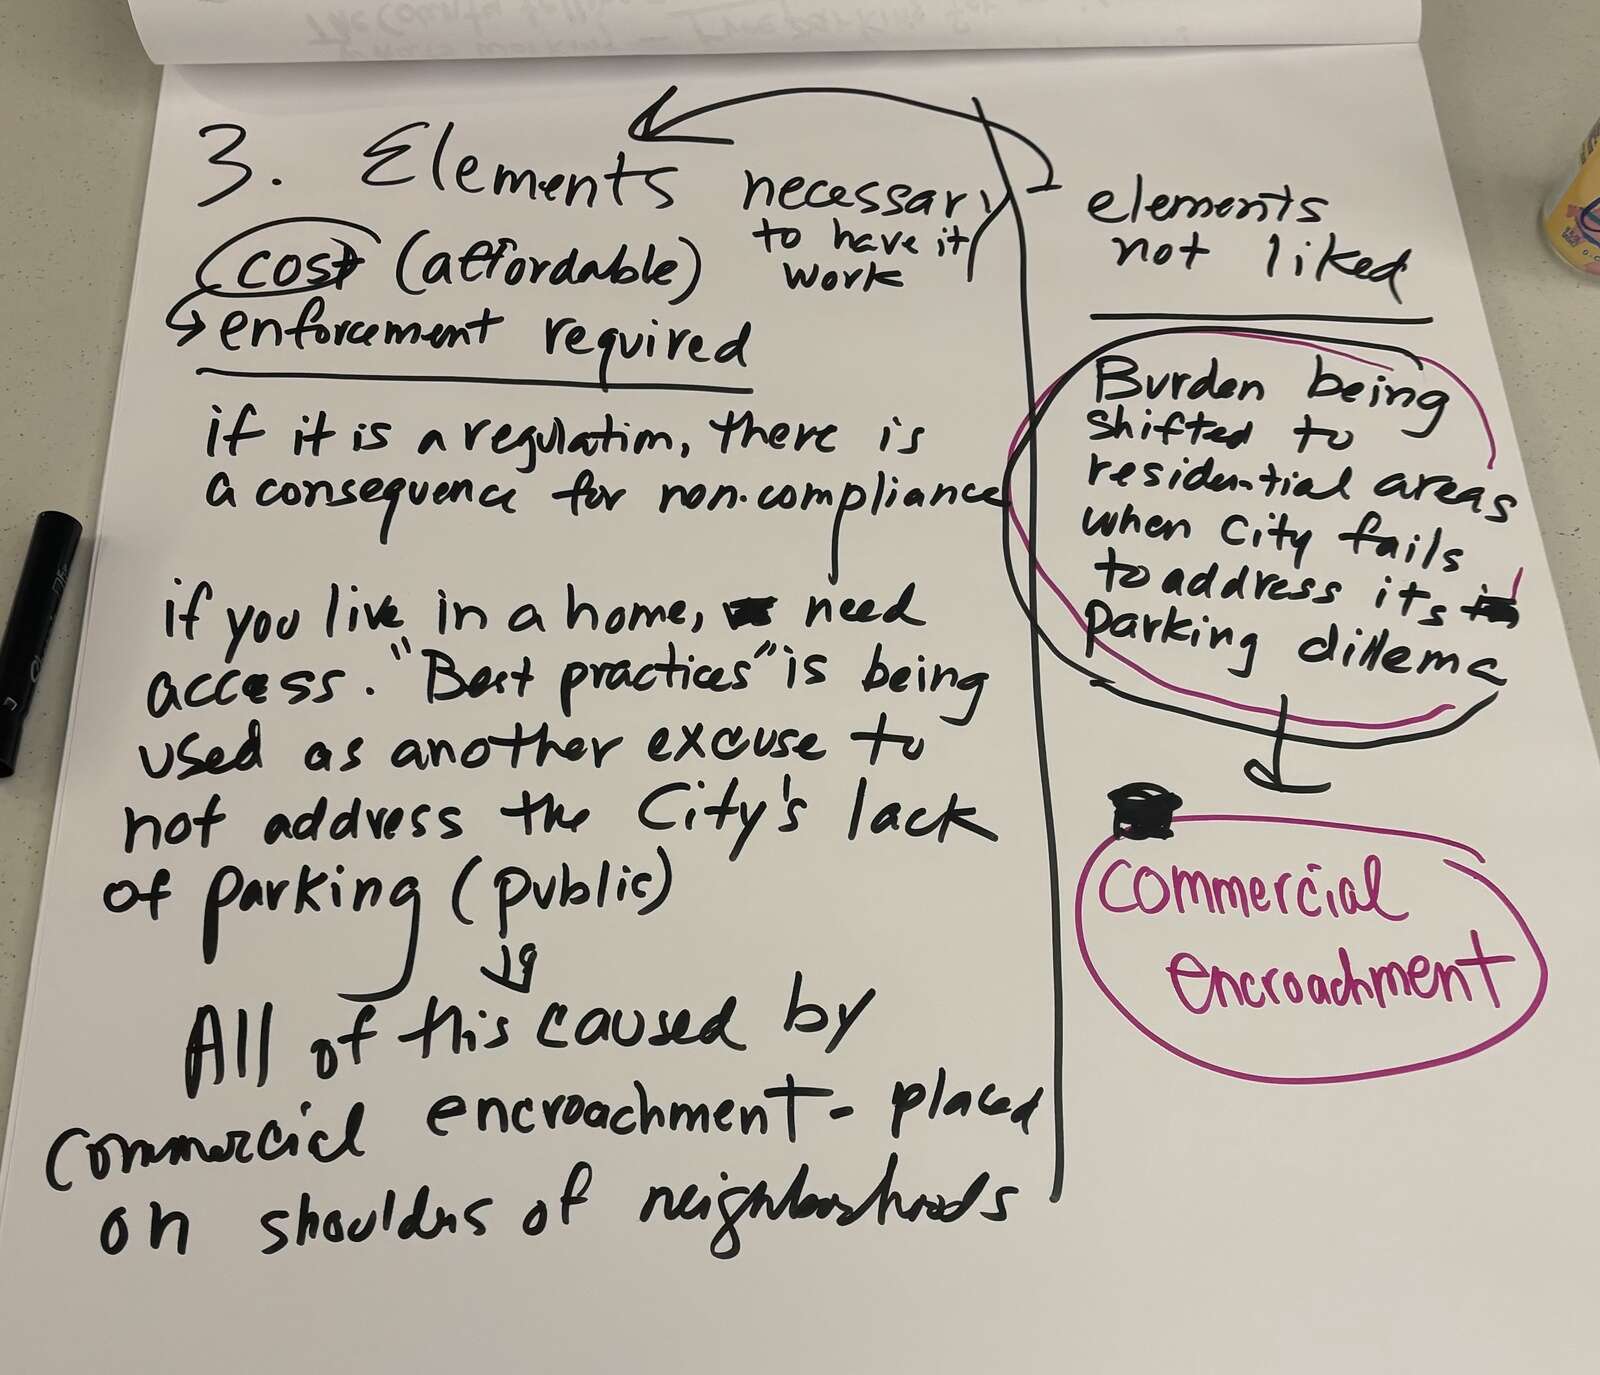 3. Elements necessary
to have it
work
cost (affordable)
enforcement required
if it is a regulation, there is
a consequence for non-compliance
if you live in a home, need
access. "Best practices" is being
used as another excuse to
not address the City's lack
of parking (public)
All of this caused by
commercial encroachment - placed
on shoulders of neighborhoods
elements
not liked
Burden being
shifted to
residential areas
when City fails
to address its
parking dillema
commercial
encroachment